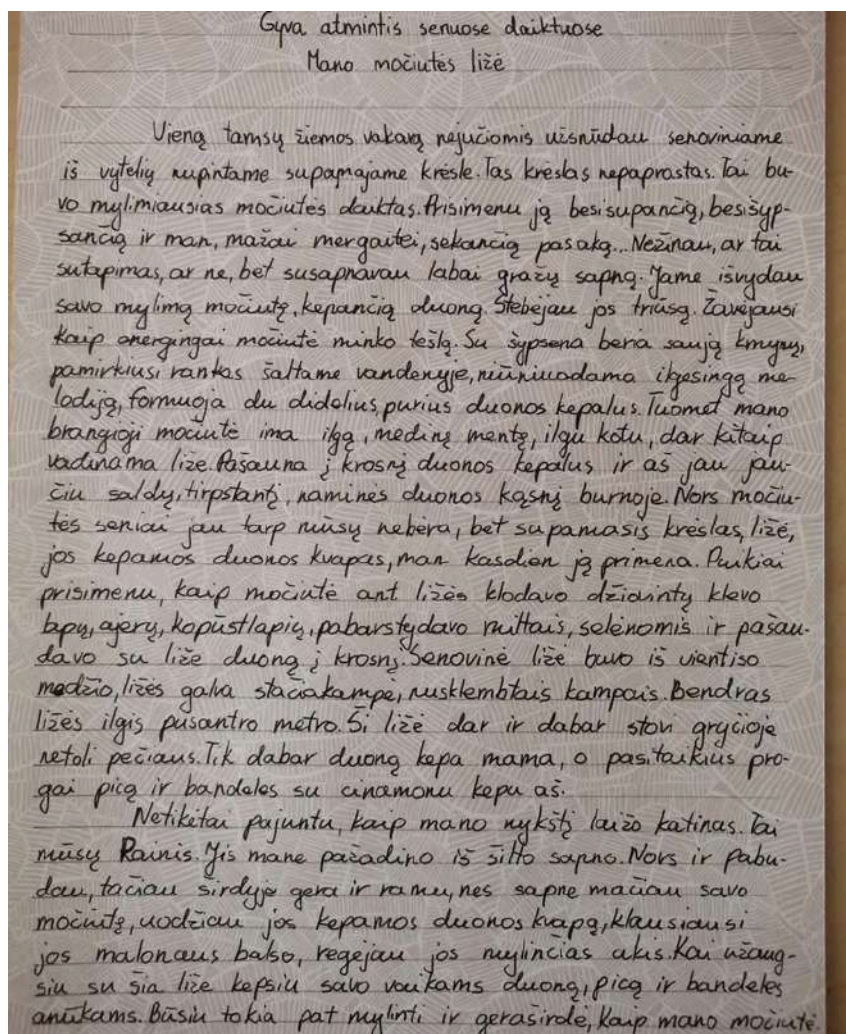 Gyva atmintis senuose daiktuose
Mano močiutės ližė
Vieną tamsų žiemos vakarą nejučiomis užsnūdau senoviniame
iš vytelių nupintame supamajame krėsle. Tas krėslas nepaprastas. Tai bu-
vo mylimiausias močiutės daiktas. Prisimenu ją besisupančią, besišyp-
sančią ir man, mažai mergaitei, sekančią pasaką... Nežinau, ar tai
sutapimas, ar ne, bet susapnavau labai gražų sapną. Jame išvydau
savo mylimą močiutę, kepančią duoną. Stebėjau jos triūsą. Žavėjausi
kaip energingai močiutė minko tešlą. Su šypsena beria saują kmynų,
pamirkiusi rankas šaltame vandenyje, niūniuodama ilgesingą me-
lodiją, formuoja du didelius, purius duonos kepalus. Tuomet mano
brangioji močiutė ima ilgą, medinę mentę, ilgu kotu, dar kitaip
vadinama liže. Pašauna į krosnį duonos kepalus ir aš jau jau-
čiu saldų, tirpstantį, naminės duonos kąsnį burnoje. Nors močiu-
tės seniai jau tarp mūsų nebėra, bet supamasis krėslas, ližė,
jos kepamos duonos kvapas, man kasdien ją primena. Puikiai
prisimenu, kaip močiutė ant ližės klodavo džiovintų klevo
lapų, ajerų, kopūstlapių, pabarstydavo miltais, sėlenomis ir pašau-
davo su liže duoną į krosnį. Senovinė ližė buvo iš vientiso
medžio, ližės galva stačiakampė, nusklembtais kampais. Bendras
ližės ilgis pusantro metro. Ši ližė dar ir dabar stovi gryčioje
netoli pečiaus. Tik dabar duoną kepa mama, o pasitaikius pro-
gai picą ir bandeles su cinamonu kepu aš.
Netikėtai pajuntu, kaip mano nykštį laižo katinas. Tai
mūsų Rainis. Jis mane pažadino iš šilto sapno. Nors ir pabu-
dau, tačiau širdyje gera ir ramu, nes sapne mačiau savo
močiutę, uodžiau jos kepamos duonos kvapą, klausiausi
jos malonaus balso, regėjau jos mylinčias akis. Kai užaug-
siu su šia liže kepsiu savo vaikams duoną, picą ir bandeles
anūkams. Būsiu tokia pat mylinti ir geraširdė, kaip mano močiutė